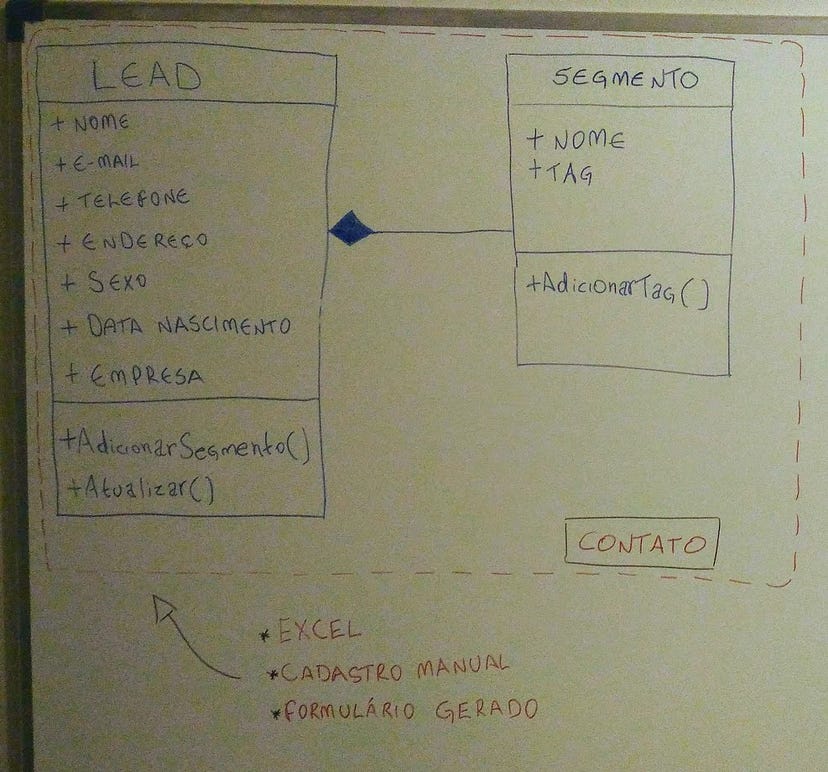 LEAD
+ NOME
+ E-MAIL
+ TELEFONE
+ ENDEREÇO
+ SEXO
+ DATA NASCIMENTO
+ EMPRESA
+AdicionarSegmento()
+Atualizar()
SEGMENTO
+ NOME
+ TAG
+AdicionarTag()
CONTATO
* EXCEL
* CADASTRO MANUAL
* FORMULÁRIO GERADO